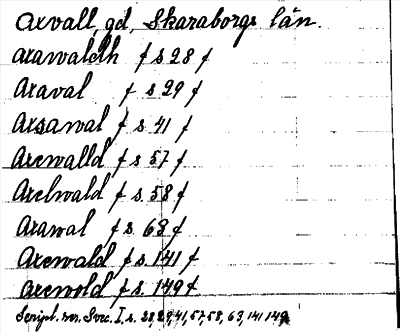 Arvall, gd, Skaraborgs län.
Arawaldh f s 28 f
Araval f s 29 f
Arsawal f s 41 f
Arewalld f s 57 f
Arelwald f s 58 f
Arawal f s 63 f
Arewald f s 141 f
Arewold f s 149 f
Script. rer. Svec. I, s. 28, 29, 41, 57, 58, 63, 141 149